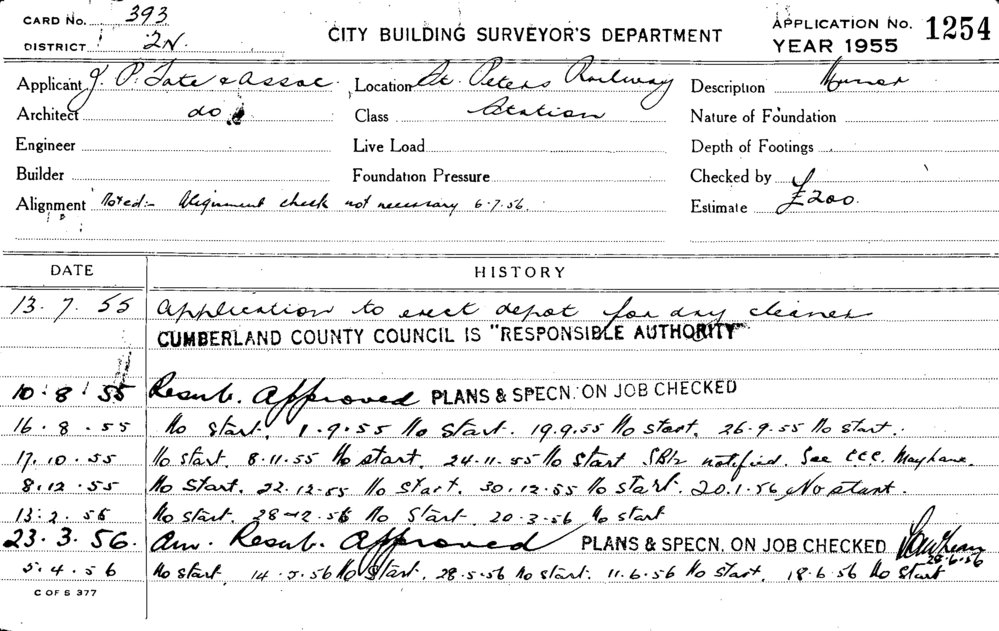 CARD NO. 393
DISTRICT 2N.
CITY BUILDING SURVEYOR'S DEPARTMENT
APPLICATION NO. 1254
YEAR 1955
Applicant J. P. Tate & Assoc. Location St. Peters Railway Description
Architect do Class Station Nature of Foundation
Engineer Live Load Depth of Footings
Builder Foundation Pressure Checked by
Alignment Noted:- Alignment check not necessary 6.7.56. Estimate £200.
DATE HISTORY
13. 7. 55 Application to erect depot for dry cleaner
CUMBERLAND COUNTY COUNCIL IS "RESPONSIBLE AUTHORITY"
10. 8. 55 Resub. Approved PLANS & SPECN. ON JOB CHECKED
16. 8. 55 No start. 1.9.55 No start. 19.9.55 No start. 26.9.55 No start.
17. 10. 55 No start. 8.11.55 No start. 24.11.55 No start notified. See CCC.
8. 12. 55 No start. 22.12.55 No start. 30.12.55 No start. 20.1.56 No start.
13. 2. 56 No start. 28.12.56 No start. 20.3.56 No start
23. 3. 56. Am. Resub. Approved PLANS & SPECN. ON JOB CHECKED 28.6.56
5. 4. 56 No start. 14.5.56 No start. 28.5.56 No start. 11.6.56 No start. 18.6.56 No start
C OF S 377